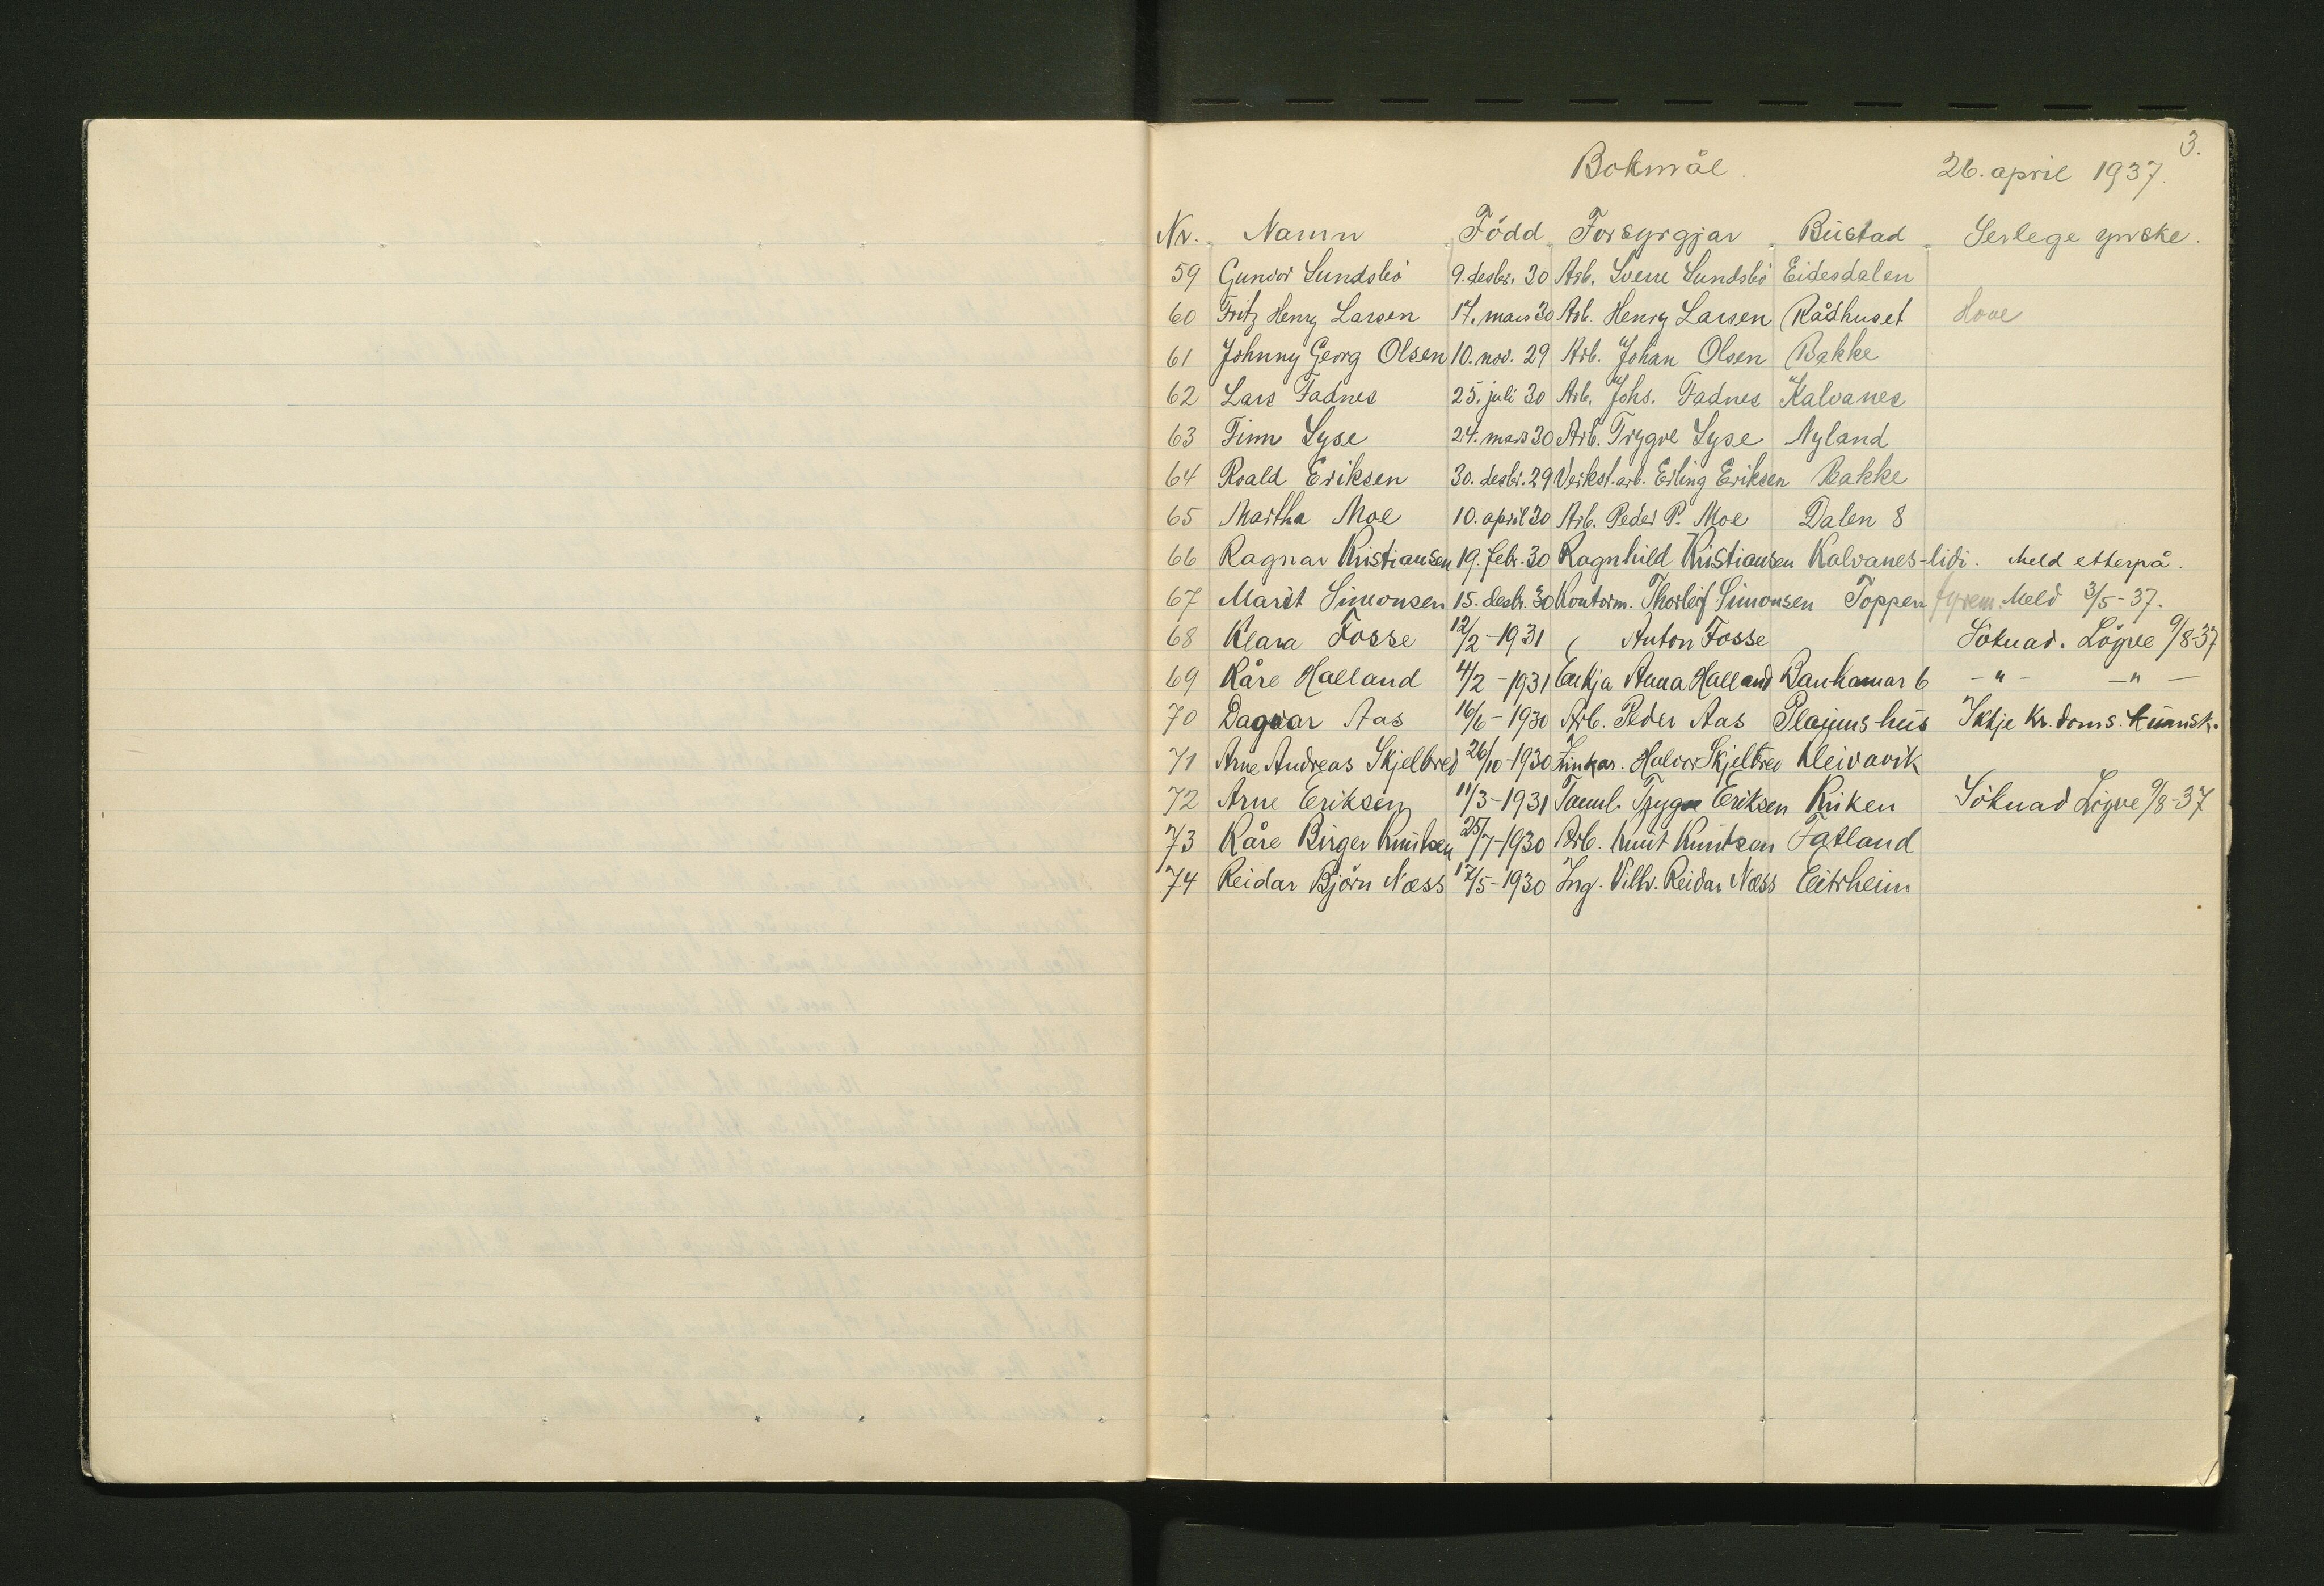 3.
Bokmål. 26. april 1937.
Nr. Namn Född Forsyrgjar Bústad Serlege ynske.
59 Gunvor Sundsbö 9. desbr. 30 Arb. Sverre Sundsbö Eidesdalen
60 Fritz Henry Larsen 17. mars 30 Arb. Henry Larsen Rådhuset Hove
61 Johnny Georg Olsen 10. nov. 29 Arb. Johan Olsen Bakke
62 Lars Fadnes 25. juli 30 Arb. Johs. Fadnes Kalvanes
63 Finn Lyse 24. mars 30 Arb. Trygve Lyse Nyland
64 Roald Eriksen 30. desbr. 29 Verkst. arb. Erling Eriksen Bakke
65 Martha Moe 10. april 30 Arb. Peder P. Moe Dalen 8
66 Ragnar Kristiansen 19. febr. 30 Ragnhild Kristiansen Kalvanes-lidi. Meld etterpå.
67 Marit Simonsen 15. desbr. 30 Kontorm. Thorleif Simonsen Toppen Meld 3/5-37.
68 Klara Fosse 12/2-1931 Anton Fosse Söknad. Lögve 9/8-37
69 Kåre Halland 4/2-1931 Enkja Anna Halland Bankanar 6 -"- -"-
70 Dagvar Aas 16/6-1930 Arb. Peder Aas Plassens hús Ikkje Kr.doms. kúnnsk.
71 Arne Andreas Skjelbred 26/10-1930 Sinkar. Halvor Skjelbred Kleivavik
72 Arne Eriksen 11/3-1931 Tannl. Trygve Eriksen Kriken Söknad Lögve 9/8-37
73 Kåre Birger Knútsen 25/7-1930 Arb. Knut Knútson Fatland
74 Reidar Björn Næss 17/5-1930 Ing. Vilh. Reidar Næss Eitrheim